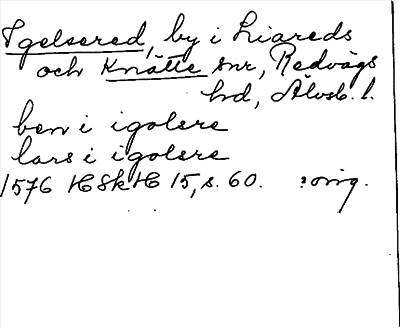 Igelsered, by i Liareds
och Knätte snr, Redvägs
hd, Älvsb. l.
ben i igolsre
lars i igolsre
1576 HSkH 15, s. 60. : orig.